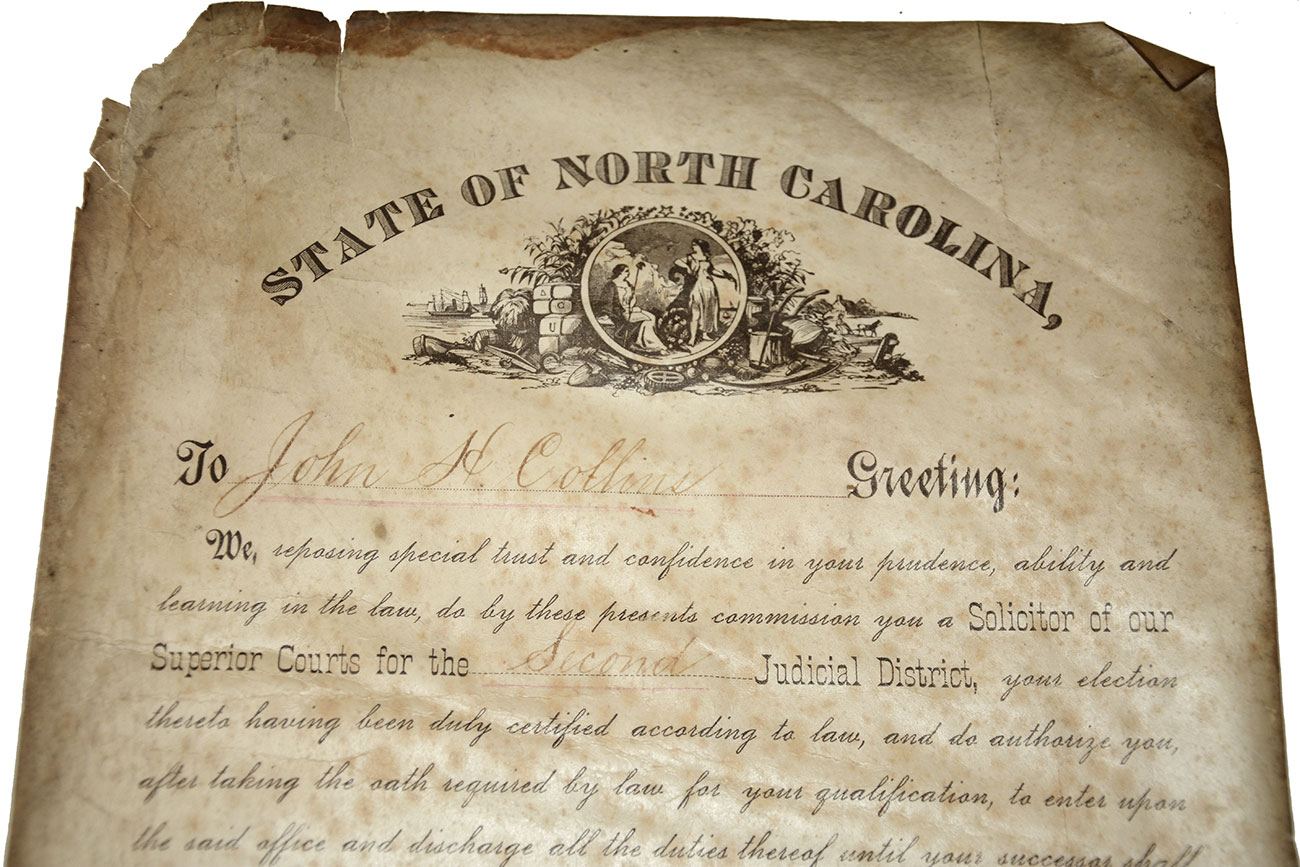 STATE OF NORTH CAROLINA,
To John H. Collins Greeting:
We, reposing special trust and confidence in your prudence, ability and
learning in the law, do by these presents commission you a Solicitor of our
Superior Courts for the Second Judicial District, your election
thereto having been duly certified according to law, and do authorize you,
after taking the oath required by law for your qualification, to enter upon
the said office and discharge all the duties thereof until your successor shall